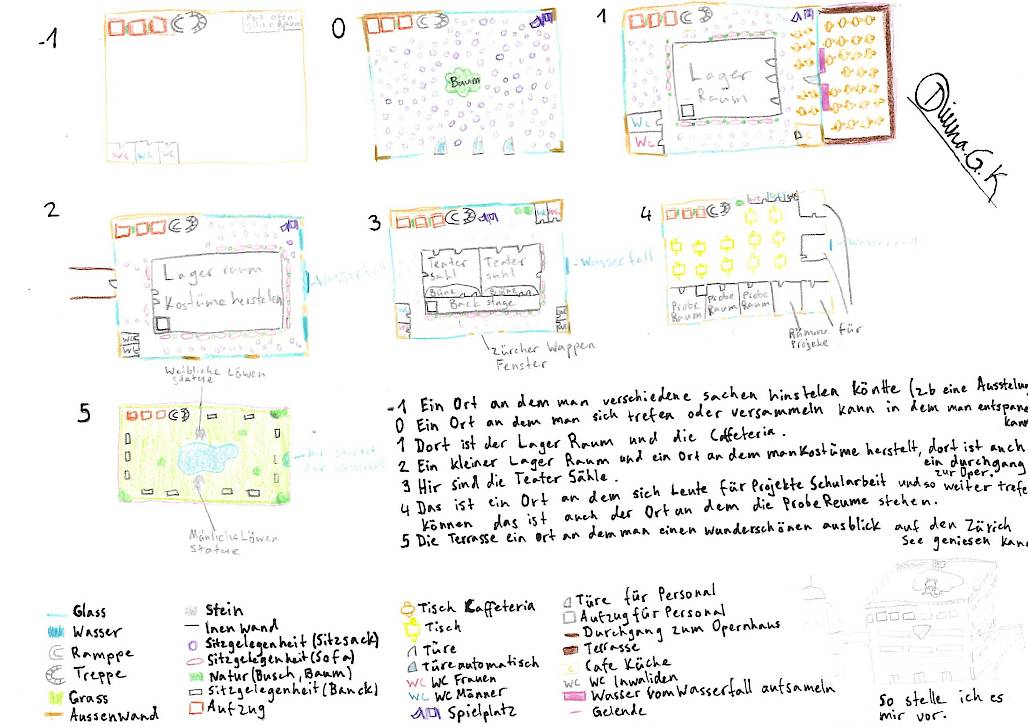 -1
0
1
Baum
Lager
Raum
WC
WC
WC WC WC
Diuna G.K
2
3
4
Lager raum
Kostüme herstelen
WC
WC
Wasserfall
Teater
sahl
Teater
sahl
Büne
Büne
Back stage
WC
WC
WC WC
Wasserfall
Zürcher Wappen
Fenster
Probe
Raum
Probe
Raum
Probe
Raum
Räume für
Projekte
Weibliche Löwen
Statue
5
Hir startet
der Wasserfall
Mänliche Löwen
Statue
-1 Ein Ort an dem man verschiedene sachen hinstelen köntte (z.b eine Ausstelung
0 Ein Ort an dem man sich trefen oder versammeln kann in dem man entspanen
kann
1 Dort ist der Lager Raum und die Caffeteria.
2 Ein kleiner Lager Raum und ein Ort an dem man Kostüme herstelt, dort ist auch
ein durchgang
zur Oper.
3 Hir sind die Teater Sähle.
4 Das ist ein Ort an dem sich Leute für Projekte Schularbeit und so weiter trefen
können das ist auch der Ort an dem die Probe Reume stehen.
5 Die Terrasse ein ort an dem man einen wunderschönen ausblick auf den Zürich
See geniesen kann
Glass
Wasser
Ramppe
Treppe
Grass
Aussenwand
Stein
Inenwand
Sitzgelegenheit (Sitzsack)
Sitzgelegenheit (Sofa)
Natur (Busch, Baum)
Sitzgelegenheit (Banck)
Aufzug
Tisch Caffeteria
Tisch
Türe
Türe automatisch
WC WC Frauen
WC WC Männer
Spielplatz
Türe für Personal
Aufzug für Personal
Durchgang zum Opernhaus
Terrasse
Cafe Küche
WC WC Invaliden
Wasser vom Wasserfall aufsameln
Gelende
So stelle ich es
mir vor.